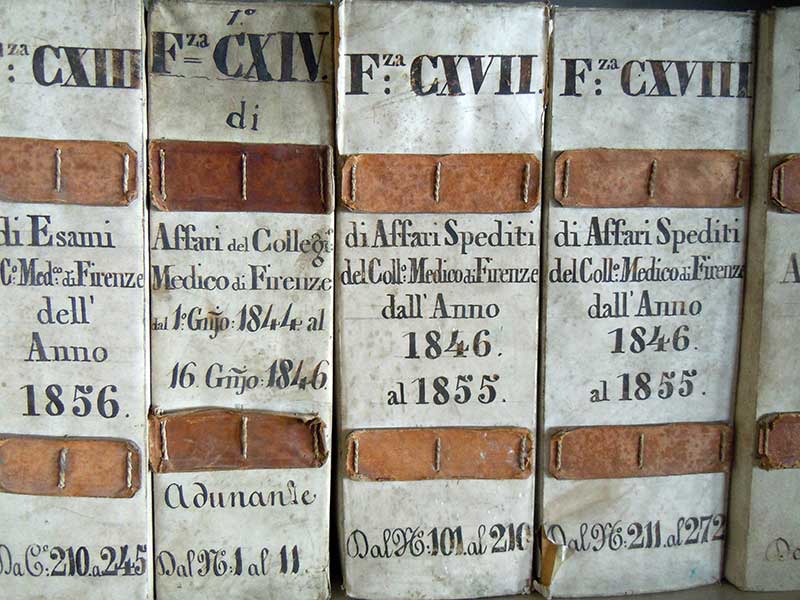 F:za CXIII
di Esami
C.o Med.co di Firenze
dell'
Anno
1856.
Da C.e 210. a 245
1.o
F=za CXIV.
di
Affari del Collegi.o
Medico di Firenze
dal 1.o Gn̄jo: 1844 al
16. Gn̄jo: 1846
Adunanze
Dal N.: 1 al 11.
F:za CXVII.
di Affari Spediti
del Coll.o Medico di Firenze
dall' Anno
1846.
al 1855.
Dal N.: 101. al 210
F:za CXVIII
di Affari Spediti
del Coll.o Medico di Firenze
dall' Anno
1846.
al 1855.
Dal N.: 211. al 272